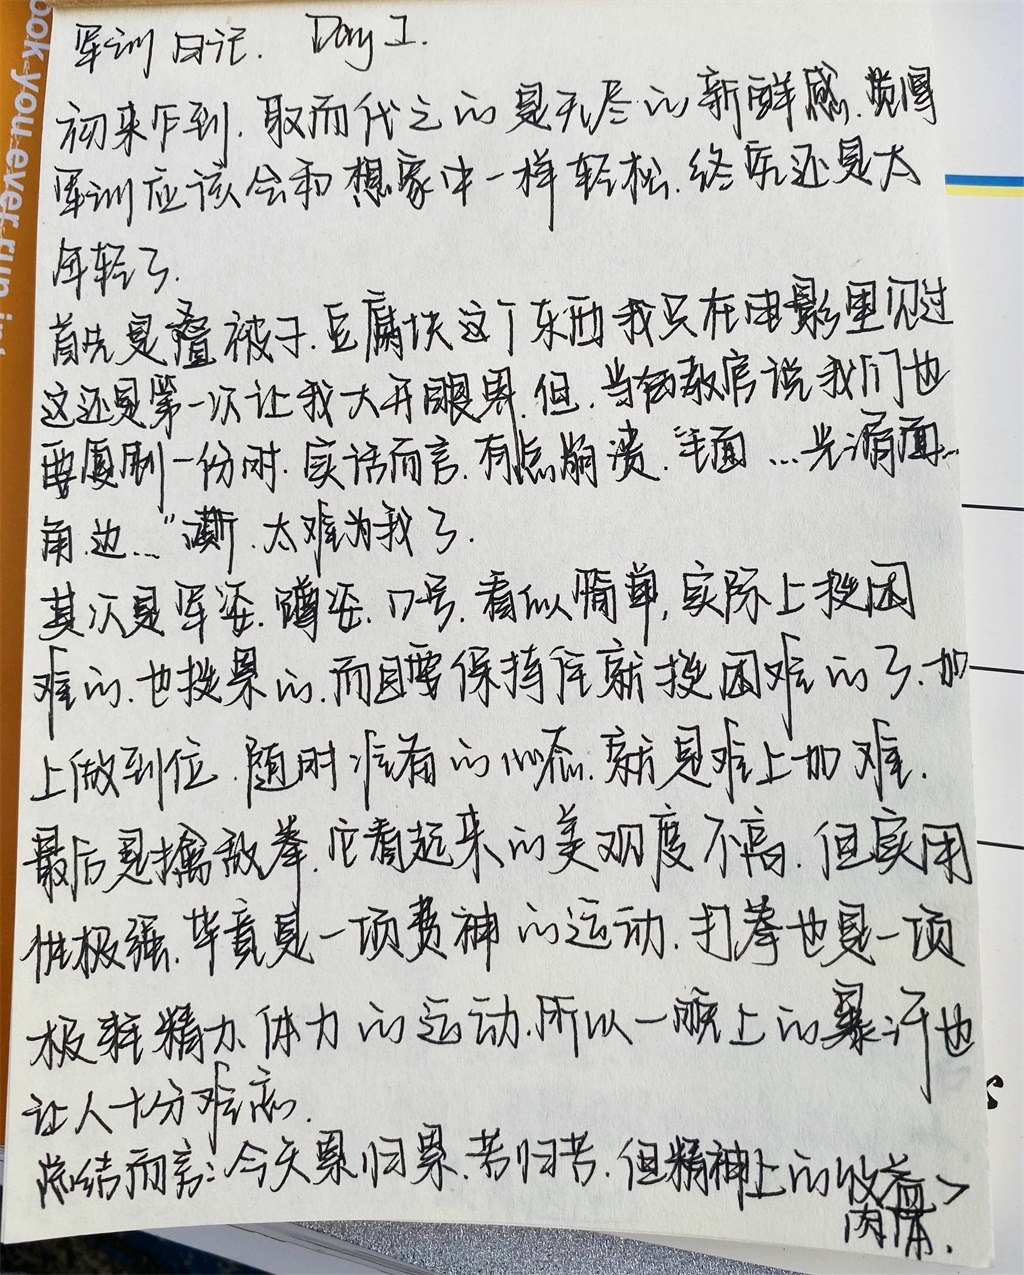 ook you ever run int
军训日记. Day 1.
初来乍到.取而代之的是无尽的新鲜感.觉得
军训应该会和想象中一样轻松.终究还是太
年轻了.
首先是叠被子.豆腐块这个东西我只在电影里见过
这还是第一次让我大开眼界.但.当教官说我们也
要复刷一份时.实话而言.有点崩溃.“平面...光滑面...
角.边...”嘶.太难为我了.
其次是军姿.蹲姿.口号.看似简单,实际上挺困
难的.也挺累的.而且要保持住就挺困难的了.加
上做到位.随时准备的心态.就是难上加难.
最后是擒敌拳.它看起来的美观度不高.但实用
性极强.毕竟是一项费神的运动.打拳也是一项
极耗精力.体力的运动.所以一晚上的暴汗也
让人十分难忘.
总结而言:今天累归累.苦归苦.但精神上的收益>
肉体.